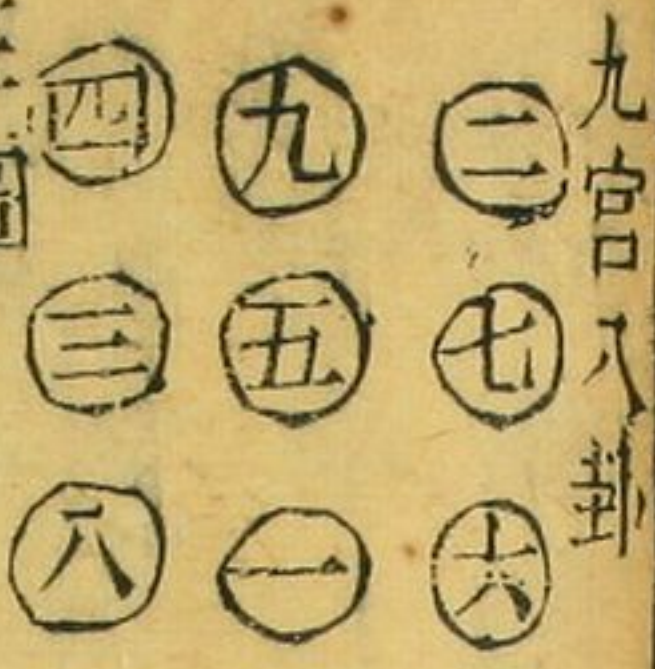 九宮八卦
二
七
六
九
五
一
四
三
八
圖